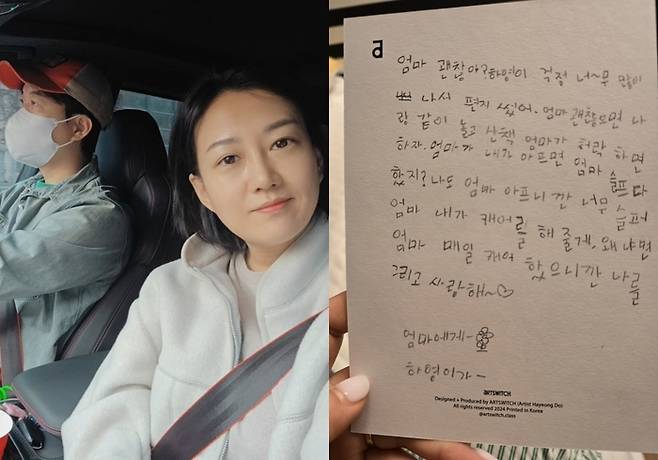 a
엄마 괜찮아? 하영이 걱정 너~무 많이
나서 편지 썼어. 엄마 괜찮으면 나
랑 같이 놀고 산책 엄마가 허락 하면
하자. 엄마가 내가 아프면 엄마 슬프다
했지? 나도 엄마 아프니깐 너무 슬퍼
엄마 내가 캐어를 해 줄게. 왜냐면
엄마 매일 캐어 했으니깐 나를
그리고 사랑해~♡
엄마에게-
하영이가-
ARTSWITCH
Designed & Produced by ARTSWITCH (Artist Hayeong Do)
All rights reserved 2024 Printed in Korea
@artswitch.class